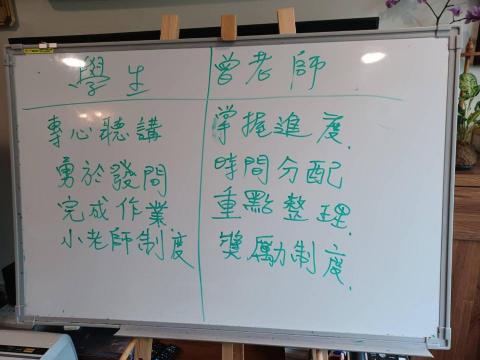 學生 曾老師
專心聽講 掌握進度.
勇於發問 時間分配
完成作業 重點整理.
小老師制度 獎勵制度.